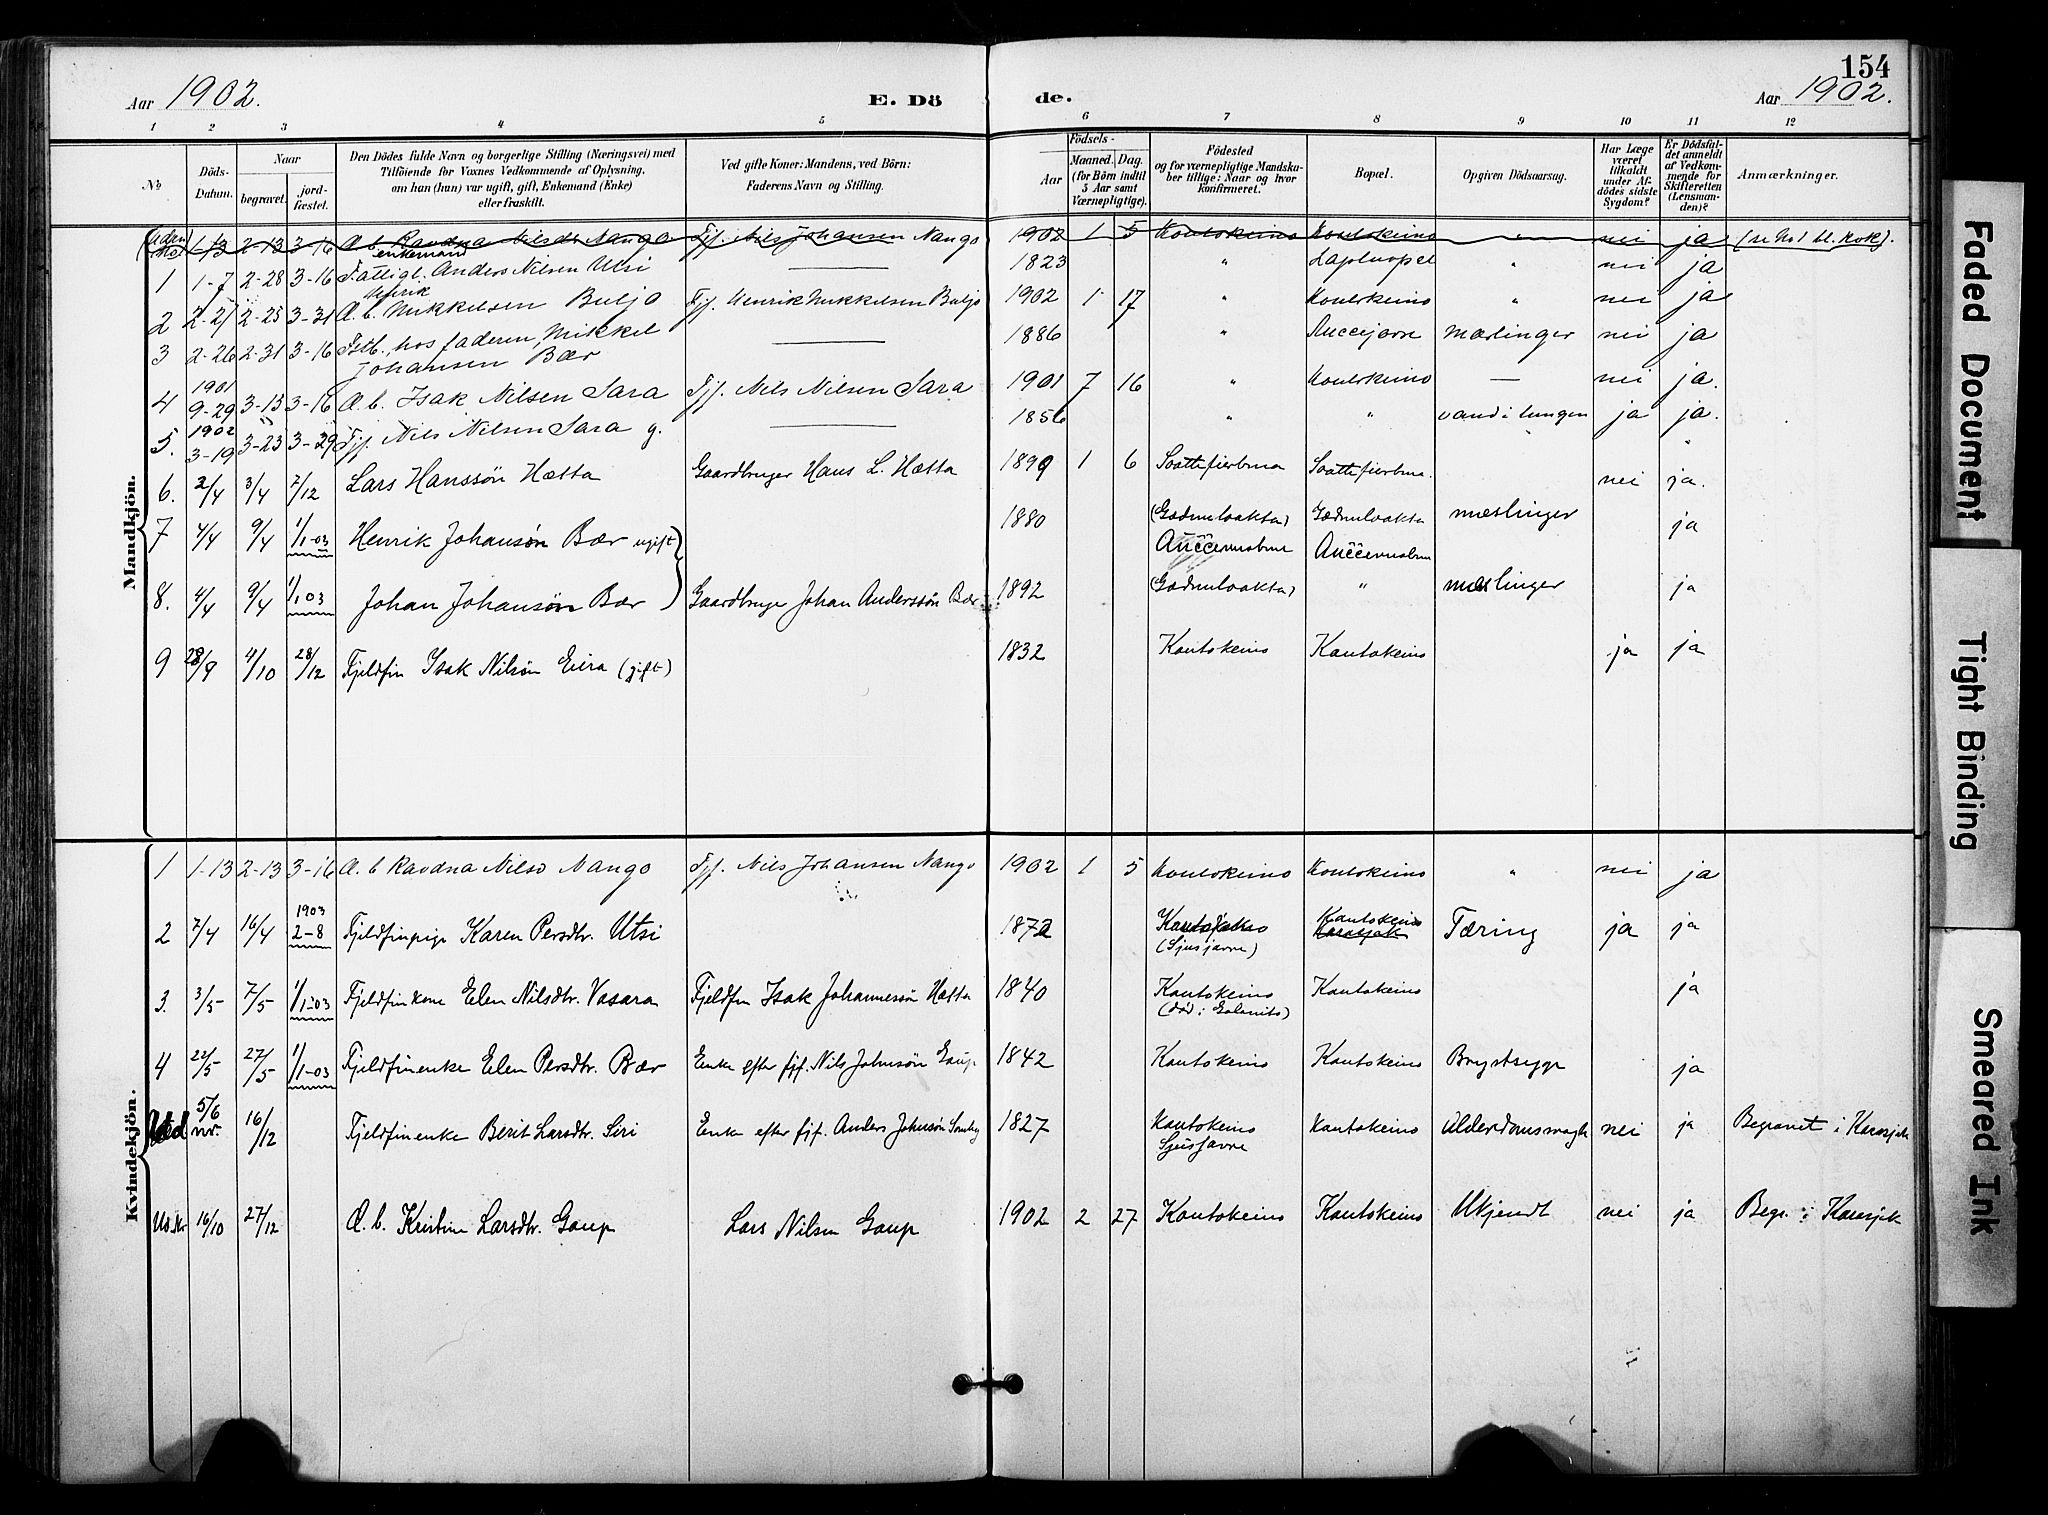 154
Aar 1902. E. Dö de. Aar 1902.
1 2 3 4 5 6 7 8 9 10 11 12
No
Döds-Datum.
Naar
begravet.
jord-fæstet.
Den Dödes fulde Navn og borgerlige Stilling (Næringsvei) med
Tilföiende for Voxnes Vedkommende af Oplysning,
om han (hun) var ugift, gift, Enkemand (Enke)
eller fraskilt.
Ved gifte Koner: Mandens, ved Börn:
Faderens Navn og Stilling.
Födsels-
Aar
Maaned. Dag.
(for Börn indtil
5 Aar samt
Værnepligtige).
Födested
og for værnepligtige Mandska-
ber tillige: Naar og hvor
konfirmeret.
Bopæl.
Opgiven Dödsaarsag.
Har Læge
været
tilkaldt
under Af-
dödes sidste
Sygdom?
Er Dödsfal-
det anmeldt
af Vedkom-
mende for
Skifteretten
(Lensman-
den)?
Anmærkninger.
Mandkjön.
(uden No) 1-13 2-13 3-16 Æ. b. Ravdna Nilsdt Nango Fjf. Nils Johansen Nango 1902 1 5 Koutokeino Koutokeino " nei ja (se No 1 bl. Kvk).
1 1-7 2-28 3-16 Fattigl. enkemand Anders Nilsen Utsi —— 1823 " " nei ja
2 2-27 2-25 3-31 Æ. b. Henrik Mikkelsen Buljo Fjf. Henrik Mikkelsen Buljo 1902 1 17 " Koutokeino " nei ja
3 2-26 2-31 3-16 Fstb., hos faderen, Mikkel
Johansen Bær —— 1886 " Auccejavre mæslinger nei ja
4 1901 9-29 3-13 3-16 Æ. b. Isak Nilsen Sara Fjf. Nils Nilsen Sara 1901 7 16 " Koutokeino — nei ja.
5. 1902 3-19 3-23 3-29 Fjf. Nils Nilsen Sara g. —— 1856 " " vand i lungen ja ja.
6. 2/4 3/4 7/12 Lars Hanssön Hætta Gaardbruger Hans L. Hætta 1899 1 6 nei ja.
7 4/4 9/4 1/1-03 Henrik Johansön Bær ugift 1880 (Gædnuloakta) Gædnuloakta mæslinger ja
8. 4/4 9/4 1/1 03 Johan Johansön Bær Gaardbruge Johan Anderssön Bær 1892 (Gædnuloakta) " mæslinger ja
9 28/9 4/10 28/12 Fjeldfin Isak Nilsön Eira (gift) 1832 Kautokeino Kautokeino ja ja
Kvindekjön.
1 1-13 2-13 3-16 Æ. b Ravdna Nilsd Nango Fjf. Nils Johansen Nango 1902 1 5 Koutokeino Koutokeino " nei ja
2 7/4 16/4 1903 2-8 Fjeldfinpige Karen Persdtr. Utsi 1872 Kautokeino
(Sjusjavre) Kautokeino Karasjok Tæring ja ja
3. 3/5 7/5 1/1-03 Fjeldfinkone Elen Nilsdtr. Vasara Fjeldfin Isak Johannessön Hætta 1840 Kautokeino
(död i Galanito) Kautokeino ja
4 22/5 27/5 1/1-03 Fjeldfinenke Elen Persdtr. Bær Enke efter fjf. Nils Johnsön Gaup 1842 Kautokeino Kautokeino Brystsyge ja
Ud. nr. 5/6 16/12 Fjeldfinenke Berit Larsdtr. Siri Enke efter fjf. Anders Johnsön 1827 Kautokeino
Sjusjavre Kautokeino Alderdomssvagh nei ja Begravet i Karasjok
Ud. Nr 16/10 27/12 Æ. b. Kristine Larsdtr. Gaup Lars Nilsen Gaup 1902 2 27 Kautokeino Kautokeino Ukjendt nei ja Begr. i Karasjok
Faded Document
Tight Binding
Smeared Ink